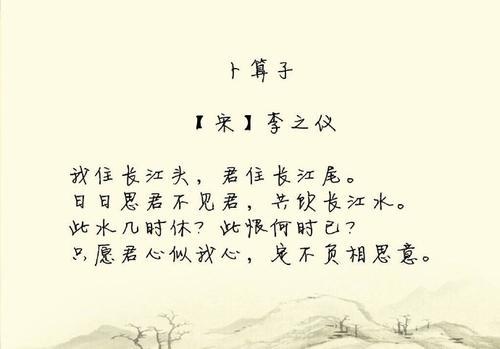 卜算子
【宋】李之仪
我住长江头，君住长江尾。
日日思君不见君，共饮长江水。
此水几时休？此恨何时已？
只愿君心似我心，定不负相思意。